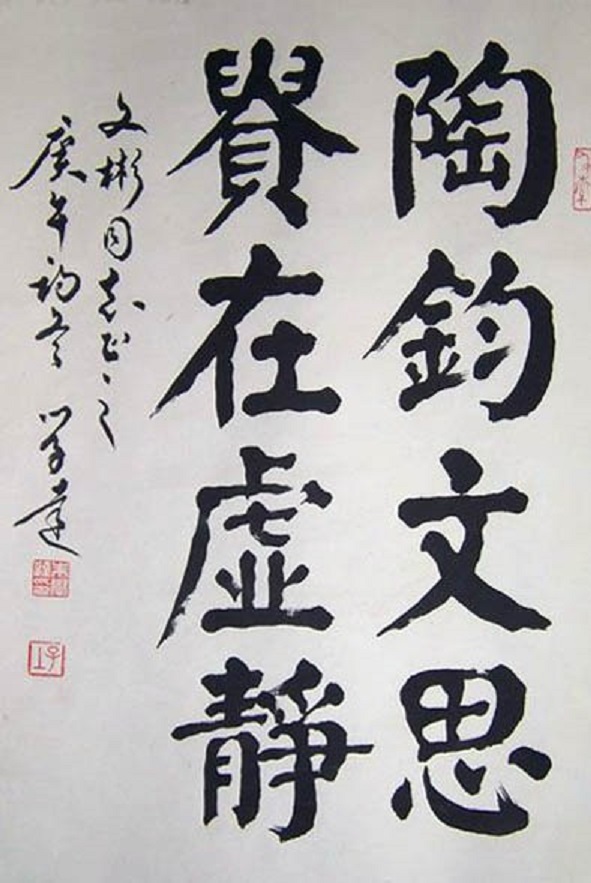 陶鈞文思
貴在虛靜
文彬同志正之
庚午初冬 學達